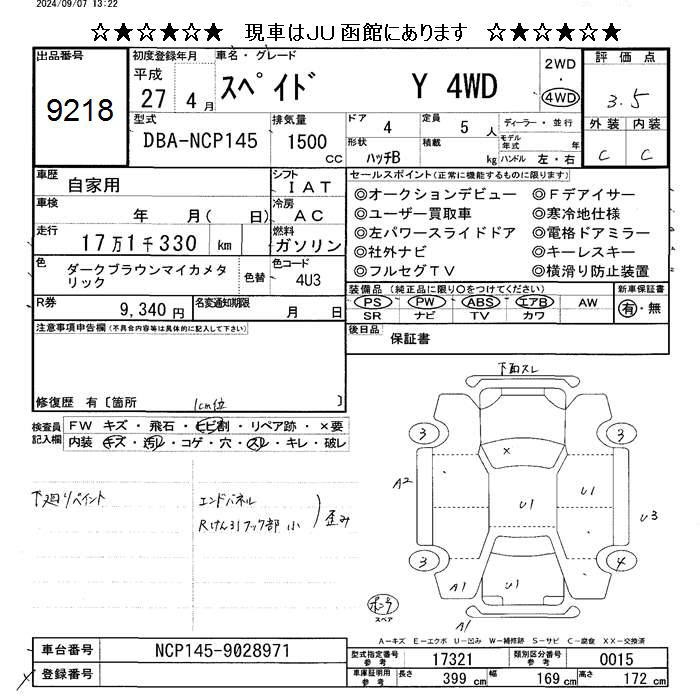 2024/09/07 13:22
☆★☆★☆★ 現車はJU函館にあります ☆★☆★☆★
出品番号 9218
初度登録年月 平成 27 4月
車名・グレード スペイド Y 4WD
2WD ・ 4WD
評価点 3.5
外装 内装
C C
型式 DBA-NCP145
排気量 1500 CC
ドア 4
定員 5 人
ディーラー・並行
形状 ハッチB
積載 kg
モデル年式 年
ハンドル 左・右
車歴 自家用
シフト IAT
車検 年 月( 日)
冷房 AC
走行 17万1千330 km
燃料 ガソリン
色 ダークブラウンマイカメタリック
色替
色コード 4U3
R券 9,340円
名変通知期限 月 日
セールスポイント(正常に機能するものに限ります)
◎オークションデビュー ◎Fデアイサー
◎ユーザー買取車 ◎寒冷地仕様
◎左パワースライドドア ◎電格ドアミラー
◎社外ナビ ◎キーレスキー
◎フルセグTV ◎横滑り防止装置
装備品(純正品に限り〇をつけてください)
新車保証書
PS PW ABS エアB AW
SR ナビ TV カワ
有・無
後日品 保証書
注意事項申告欄(不具合内容等は具体的に記入して下さい)
修復歴 有〔箇所 〕
1cm位
検査員記入欄
FW キズ・飛石・ヒビ割・リペア跡・×要
内装 キズ・汚レ・コゲ・穴・スレ・キレ・破レ
下廻りペイント
エンドパネル
Rけん引フック部 小
歪み
下面スレ
3 3
X
A2 U1 U1 U3
3 4
A1 U1
A1
スペア
A-キズ E-エクボ U-凹み W-補修跡 S-サビ C-腐食 XX-交換済
車台番号 NCP145-9028971
登録番号
型式指定番号 参考 17321
類別区分番号 参考 0015
車庫証明用 参考 長さ 399 cm 幅 169 cm 高さ 172 cm